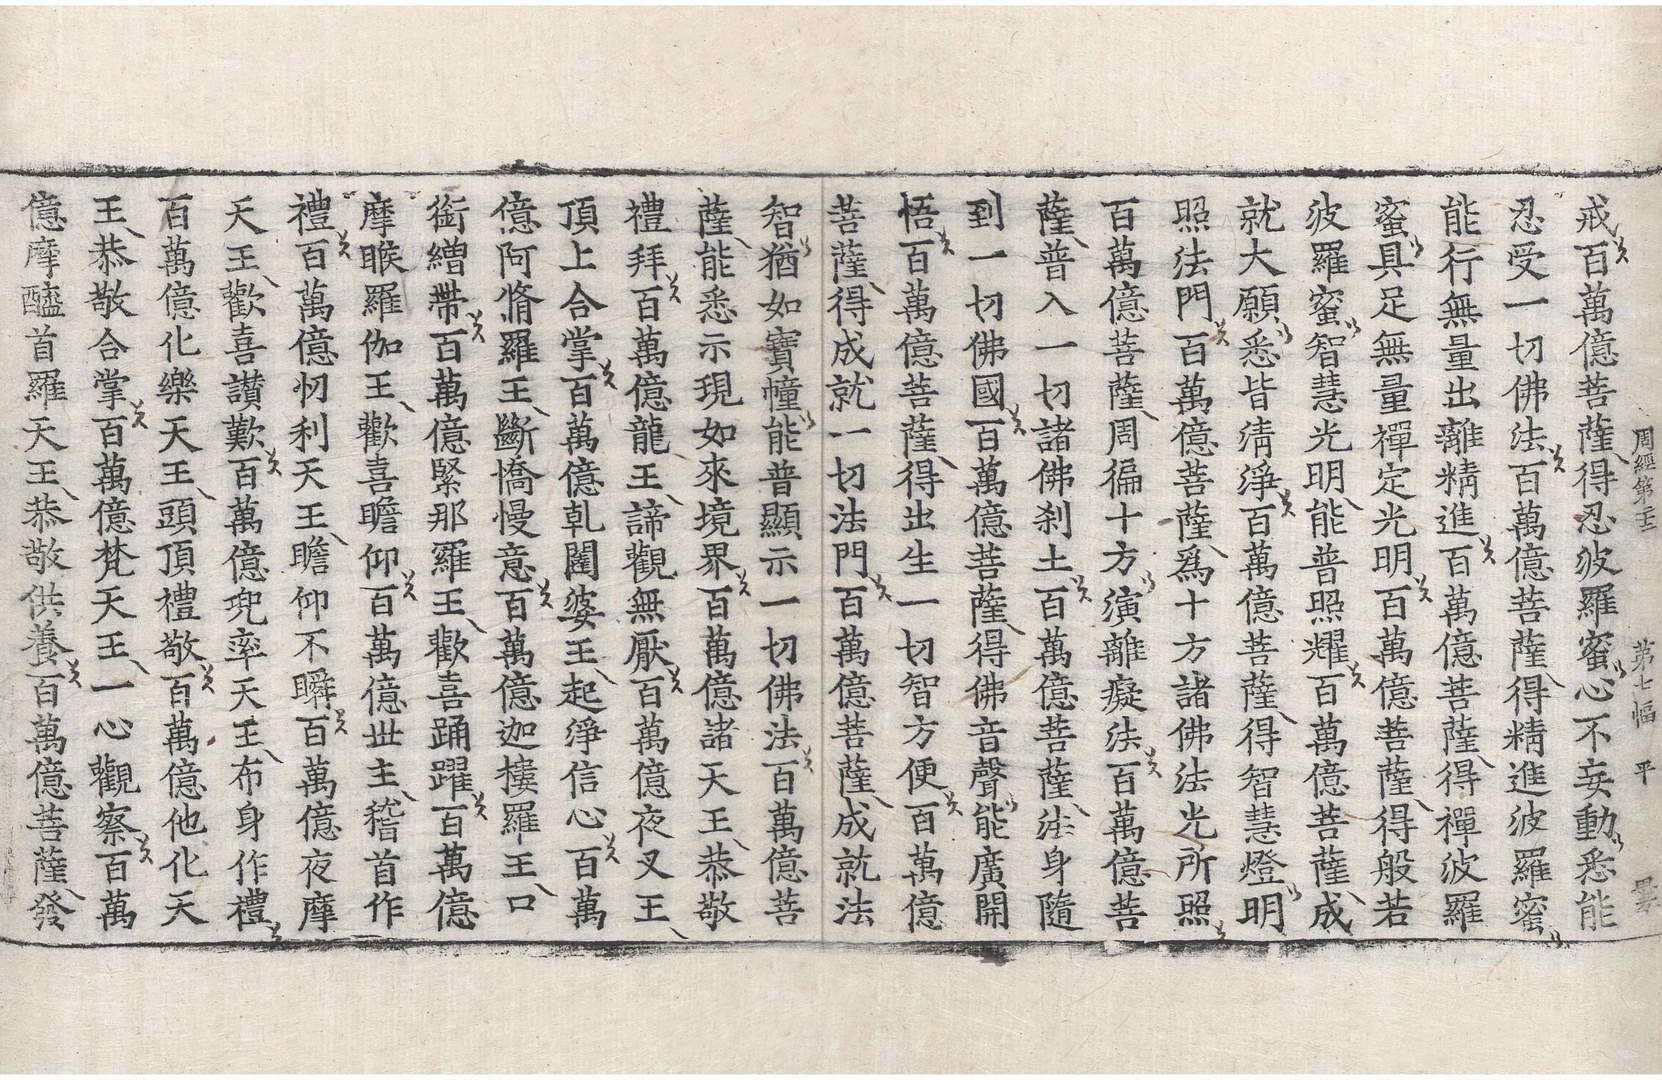 周經第二十二 第七幅 平
戒百萬億菩薩得忍波羅蜜心不妄動悉能
忍受一切佛法百萬億菩薩得精進波羅蜜
能行無量出離精進百萬億菩薩得禪波羅
蜜具足無量禪定光明百萬億菩薩得般若
波羅蜜智慧光明能普照耀百萬億菩薩成
就大願悉皆清淨百萬億菩薩得智慧燈明
照法門百萬億菩薩爲十方諸佛法光所照
百萬億菩薩周徧十方演離癡法百萬億菩
薩普入一切諸佛刹土百萬億菩薩法身隨
到一切佛國百萬億菩薩得佛音聲能廣開
悟百萬億菩薩得出生一切智方便百萬億
菩薩得成就一切法門百萬億菩薩成就法
智猶如寶幢能普顯示一切佛法百萬億菩
薩能悉示現如來境界百萬億諸天王恭敬
禮拜百萬億龍王諦觀無厭百萬億夜叉王
頂上合掌百萬億乹闥婆王起淨信心百萬
億阿脩羅王斷憍慢意百萬億迦樓羅王口
銜繒帶百萬億緊那羅王歡喜踊躍百萬億
摩睺羅伽王歡喜瞻仰百萬億世主稽首作
禮百萬億忉利天王瞻仰不瞬百萬億夜摩
天王歡喜讃歎百萬億兜率天王布身作禮
百萬億化樂天王頭頂禮敬百萬億他化天
王恭敬合掌百萬億梵天王一心觀察百萬
億摩醯首羅天王恭敬供養百萬億菩薩發